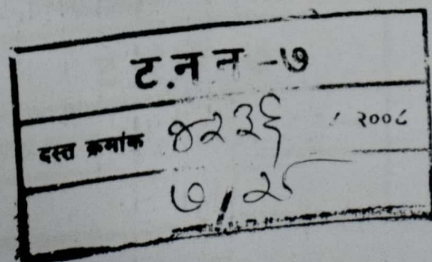 ट.न न -७
दस्त क्रमांक ४२३६ / २००८
७/२८